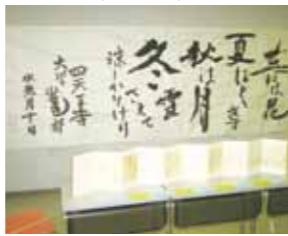 春は花
夏ほとゝぎす
秋は月
冬雪
さえて
涼しかりけり
四天王寺
大僧
月十日